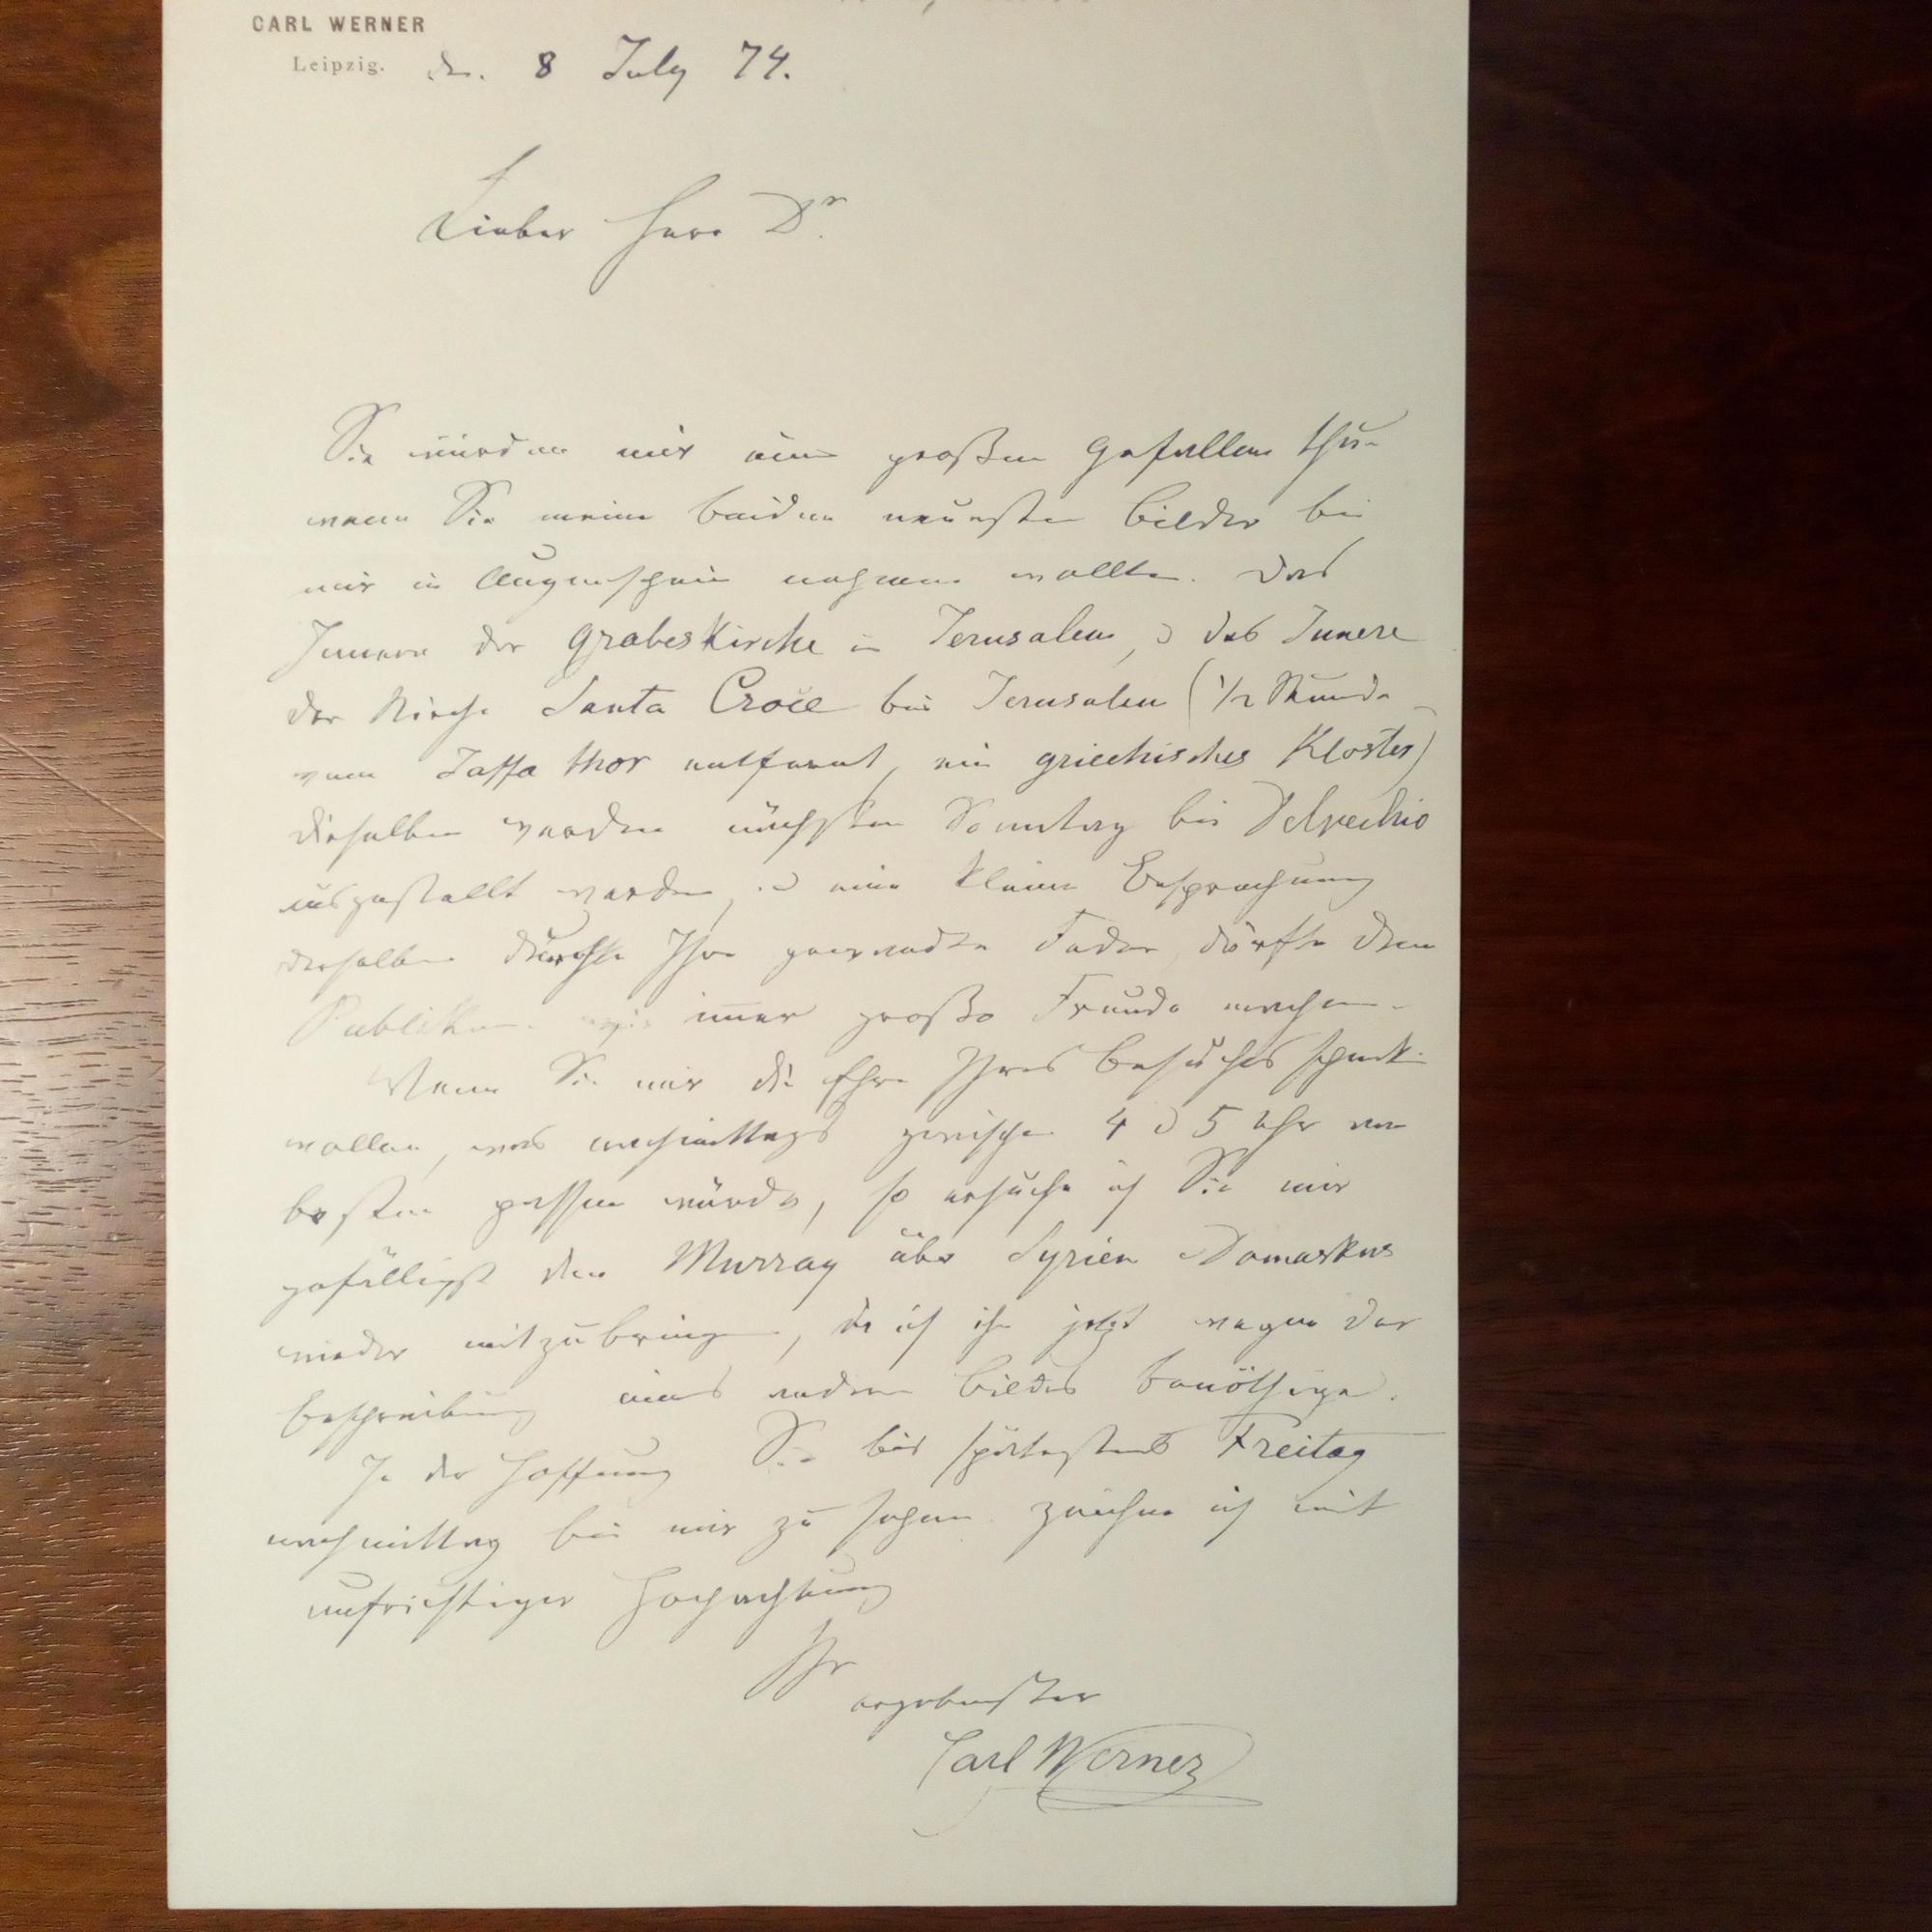 CARL WERNER
Leipzig. dn. 8 July 74.
Lieber Herr Dr.
Sie würden mir einen großen Gefallen thun
wenn Sie meine beiden neuesten Bilder bei
mir in Augenschein nehmen wollten. Das
Innere der Grabeskirche in Jerusalem, u das Innere
der Kirche Santa Croce bei Jerusalem (1/2 Stunde
vom Jaffa thor entfernt, ein griechisches Kloster)
dieselben werden nächsten Sonntag bei Delvechio
ausgestellt werden, u eine kleine Besprechung
derselben durch Ihre gewandte Feder, dürfte dem
Publikum immer große Freude machen.
Wenn Sie mir die Ehre Ihres Besuches schenken
wollen, was nachmittags zwischen 4 u 5 Uhr am
besten passen würde, so ersuche ich Sie mir
gefälligst den Murray über Syrien Damaskus
wieder mitzubringen, da ich ihn jetzt wegen der
Beschreibung eines andern Bildes benöthige.
In der Hoffnung Sie bis spätestens Freitag
nachmittag bei mir zu sehen zeichne ich mit
aufrichtiger Hochachtung
Ihr
ergebenster
Carl Werner